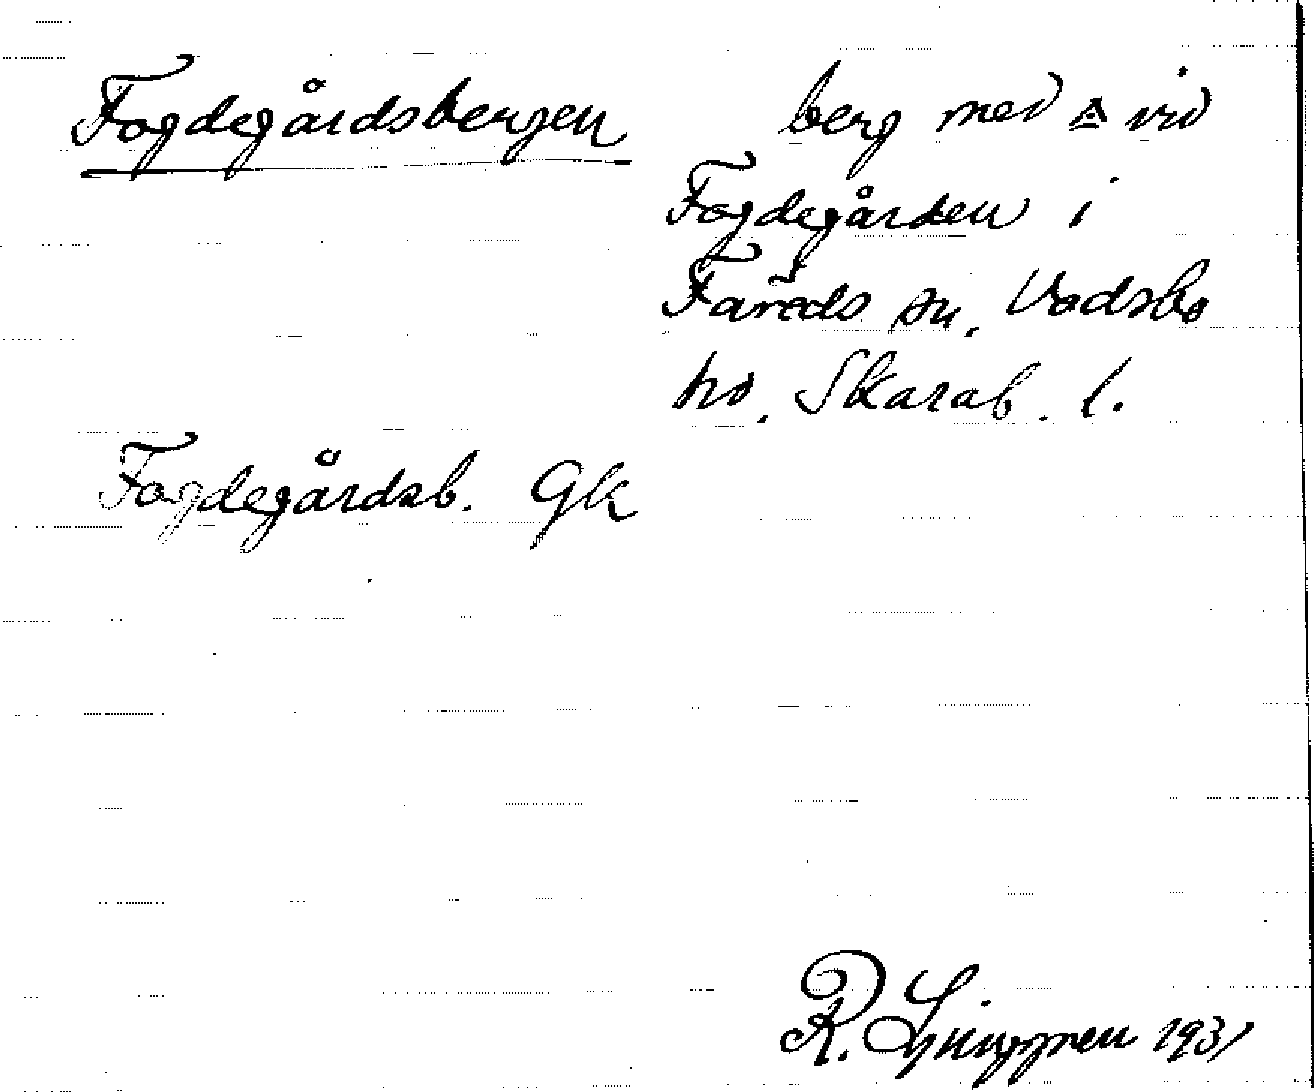 Fogdegårdsbergen berg med △ vid
Fogdegården i
Fareds sn, Vadsbo
hd, Skarab. l.
Fogdegårdsb. Gk
R. Ljunggren 1931